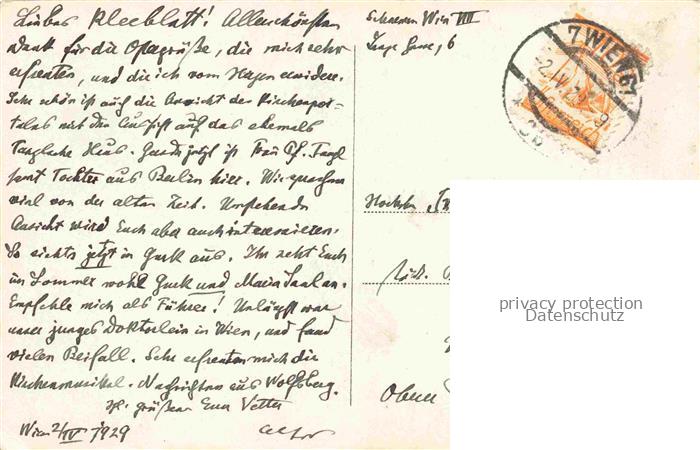 Liebes Kleeblatt! Allerschönsten
Dank für die Ostergrüße, die mich sehr
erfreuten, und die ich vom Herzen erwidere.
Sehr schön ist auch die Ansicht des Kirchenpor-
tales mit der Aussicht auf das ehemals
Haus. Gerade jetzt ist Frau
samt Tochter aus Berlin hier. Wir sprachen
viel von der alten Zeit. Umstehende
Ansicht wird Euch aber auch interessieren.
So siehts jetzt in Gurk aus. Ihr seht Euch
im Sommer wohl Gurk und Maria Saal an.
Empfehle mich als Führer! Unlängst war
unser junges Doktorlein in Wien, und fand
vielen Beifall. Sehr erfreuten mich die
Kirchenmusikal. Nachrichten aus Wolfsberg.
Es grüßt Euer Vetter
Wien 2/IV 1929
Wien VIII
Lange Gasse, 6
7 WIEN 61
privacy protection
Datenschutz
Obere